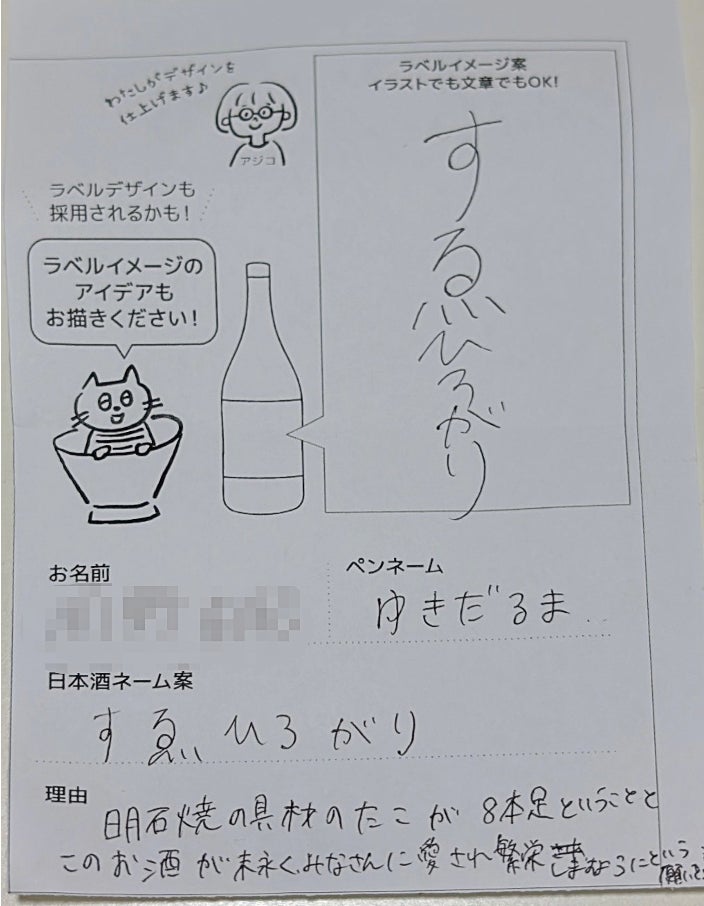 わたしがデザインを
仕上げます♪
アジコ
ラベルデザインも
採用されるかも！
ラベルイメージの
アイデアも
お描きください！
ラベルイメージ案
イラストでも文章でもOK!
すゑひろがり
お名前
ペンネーム
ゆきだるま
日本酒ネーム案
すゑひろがり
理由
明石焼の具材のたこが8本足ということと
このお酒が末永くみなさんに愛され繁栄しますようにという
願いを